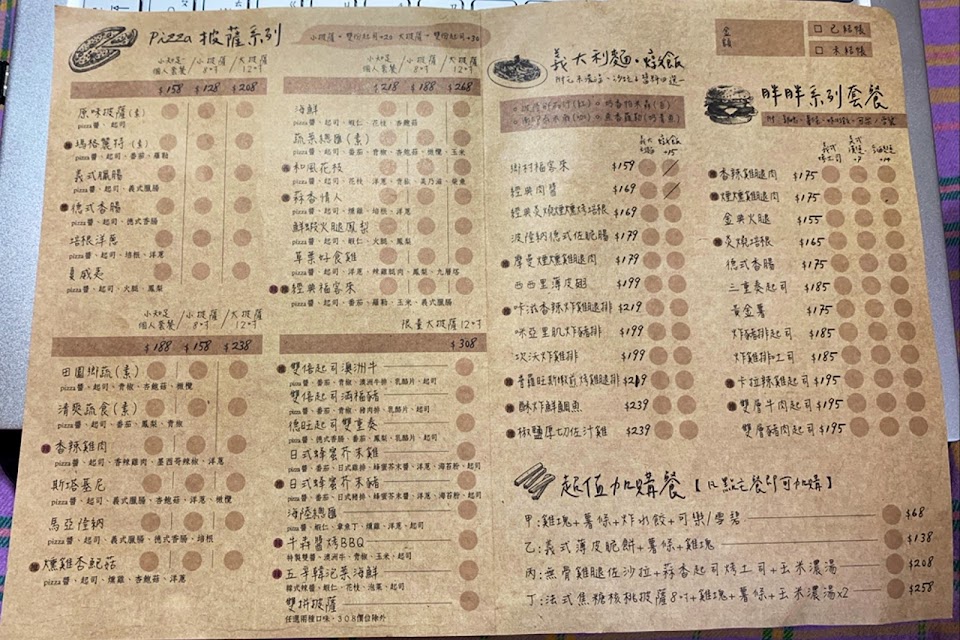 Pizza 披薩系列
小披薩+雙倍起司+20 大披薩+雙倍起司+30
小知足 個人套餐 / 小披薩 8吋 / 大披薩 12吋
$158 $128 $208
原味披薩(素)
pizza醬、起司
瑪格麗特(素)
pizza醬、起司、番茄、羅勒
義式臘腸
pizza醬、起司、義式臘腸
德式香腸
pizza醬、起司、德式香腸
培根洋蔥
pizza醬、起司、培根、洋蔥
夏威夷
pizza醬、起司、火腿、鳳梨
小知足 個人套餐 / 小披薩 8吋 / 大披薩 12吋
$188 $158 $238
田園鄉蔬(素)
pizza醬、起司、青椒、杏鮑菇、橄欖
清爽蔬食(素)
pizza醬、起司、番茄、鳳梨、青椒
香辣雞肉
pizza醬、起司、香辣雞肉、墨西哥辣椒、洋蔥
斯塔基尼
pizza醬、起司、義式臘腸、杏鮑菇、洋蔥、橄欖
馬亞陸納
pizza醬、起司、義式臘腸、德式香腸、培根
燻雞杏鮑菇
pizza醬、起司、燻雞、杏鮑菇、洋蔥
小知足 個人套餐 / 小披薩 8吋 / 大披薩 12吋
$218 $188 $268
海鮮
pizza醬、起司、蝦仁、花枝、杏鮑菇
蔬菜總匯(素)
pizza醬、起司、番茄、青椒、杏鮑菇、橄欖、玉米
和風花枝
pizza醬、起司、花枝、洋蔥、青椒、美乃滋、柴魚
蒜香情人
pizza醬、起司、燻雞、培根、洋蔥
鮮蝦火腿鳳梨
pizza醬、起司、蝦仁、火腿、鳳梨
草菓好食雞
pizza醬、起司、洋蔥、辣雞腿肉、鳳梨、九層塔
經典福客來
pizza醬、起司、番茄、羅勒、玉米、義式臘腸
限量大披薩12吋
$308
雙倍起司澳洲牛
pizza醬、番茄、青椒、澳洲牛排、乳酪片、起司
雙倍起司滿福豬
pizza醬、番茄、青椒、豬肉排、乳酪片、起司
德旺起司雙重奏
pizza醬、德式香腸、番茄、鳳梨、乳酪片、起司
日式蜂蜜芥末雞
pizza醬、番茄、日式雞排、蜂蜜芥末醬、洋蔥、海苔粉、起司
日式蜂蜜芥末豬
海陸總匯
pizza醬、蝦仁、章魚丁、燻雞、洋蔥、起司
牛蒜醬烤BBQ
特製雙醬、澳洲牛、青椒、玉米、洋蔥、起司
五辛韓泡菜海鮮
韓式辣醬、蝦仁、花枝、泡菜、起司
雙拼披薩
任選兩種口味、308價位除外
義大利麵·燉飯
鄉村福客來 $159
經典肉醬 $169
經典炙燒燻燻烤培根 $169
波隆納德式佐脆腸 $179
摩曼燻燻雞腿肉 $179
西西里薄皮翅 $199
卡滋香辣炸雞腿排 $219
米亞里肌炸豬排 $199
次沃炸雞排 $199
普羅旺斯嫩煎烤雞腿排 $219
酥炸鮮鯛魚 $239
椒鹽厚切佐汁雞 $239
金額
□ 已結帳
□ 未結帳
胖胖系列套餐
香辣雞腿肉 $175
燻燻雞腿肉 $175
金典火腿 $155
炙燒培根 $165
德式香腸 $175
三重奏起司 $185
黃金薯 $175
炸豬排起司 $185
炸雞排起司 $185
卡拉辣雞起司 $195
雙層牛肉起司 $195
雙層豬肉起司 $195
超值加購餐【凡點主餐即可加購】
甲:雞塊+薯條+炸水餃+可樂/雪碧 $68
乙:義式薄皮脆餅+薯條+雞塊 $138
丙:無骨雞腿佐沙拉+蒜香起司烤土司+玉米濃湯 $208
丁:法式焦糖核桃披薩8吋+雞塊+薯條+玉米濃湯x2 $258